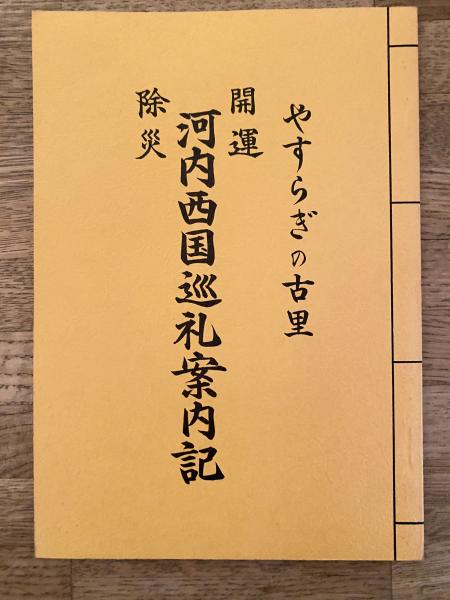 やすらぎの古里
開運
除災
河内西国巡礼案内記